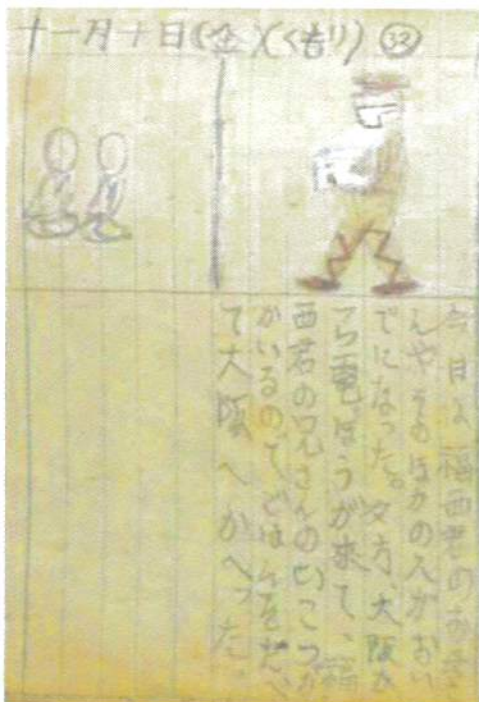 十一月十日(金)(くもり) ㉜
今日は福西君のお
んやそのほかの人がおい
でになった。夕方、大阪か
ら電ぽうが来て、福
西君の兄さんの
がいるので、ごはんをたべ
て大阪へかへった。